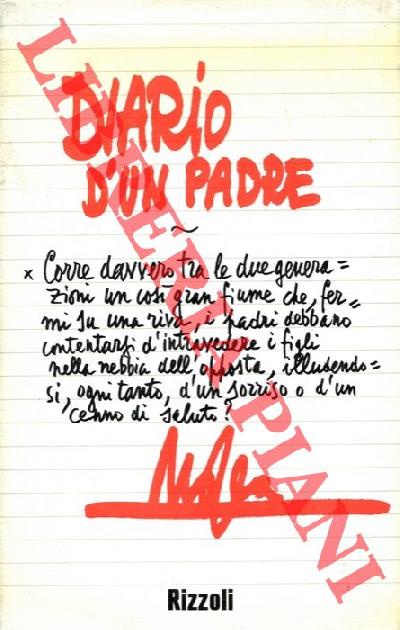 DIARIO
D'UN PADRE
~
* Corre davvero tra le due genera=
zioni un così gran fiume che, fer=
mi su una riva, i padri debbano
contentarsi d'intravedere i figli
nella nebbia dell'opposta, illudendo=
si, ogni tanto, d'un sorriso o d'un
cenno di saluto?
Rizzoli
LIBRERIA PIANI